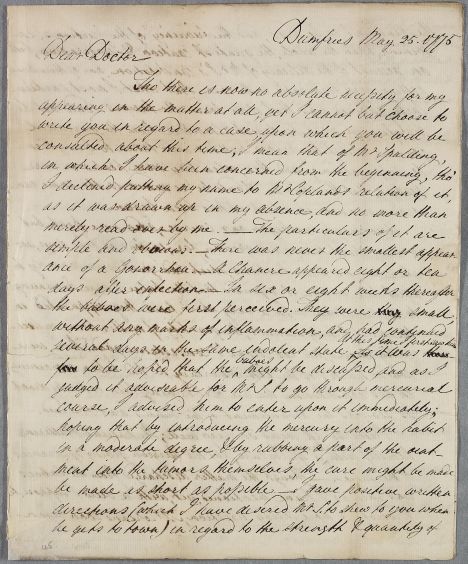 Dumfries May 25. 1775
Dear Doctor
Tho there is now no absolute necessity for my
appearing in the matter at all, yet I cannot but choose to
write you in regard to a case upon which you will be
consulted about this time; I mean that of Mr Spalding,
in which I have been concerned from the beginning, tho'
I declined putting my name to Mr Coplands relation of it,
as it was drawn up in my absence, and no more than
merely read over by me. — The particulars of it are
simple and — There was never the smallest appear
ance of a Gonorrhea — A Chancre appeared eight or ten
days after infection — In six or eight weeks thereafter
the Buboes were first perceived. They were small,
without any marks of inflammation, and had continued
several days in the same indolent state As it was
to be hoped that the buboes might be discussed and as I
judged it adviseable for Mr S. to go through a mercurial
course, I advised him to enter upon it immediately;
hoping that by introducing the mercury into the habit
in a moderate degree & by rubbing a part of the oint-
ment into the tumors themselves, the cure might be made
be made as short as possible — I gave positive written
directions (which I have desired Mr S. to shew to you when
he gets to town) in regard to the strength & quantity of